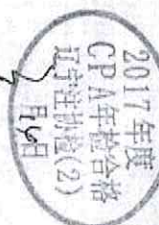 2017年度
CPA年检合格
辽宁注协检(2)
月16日